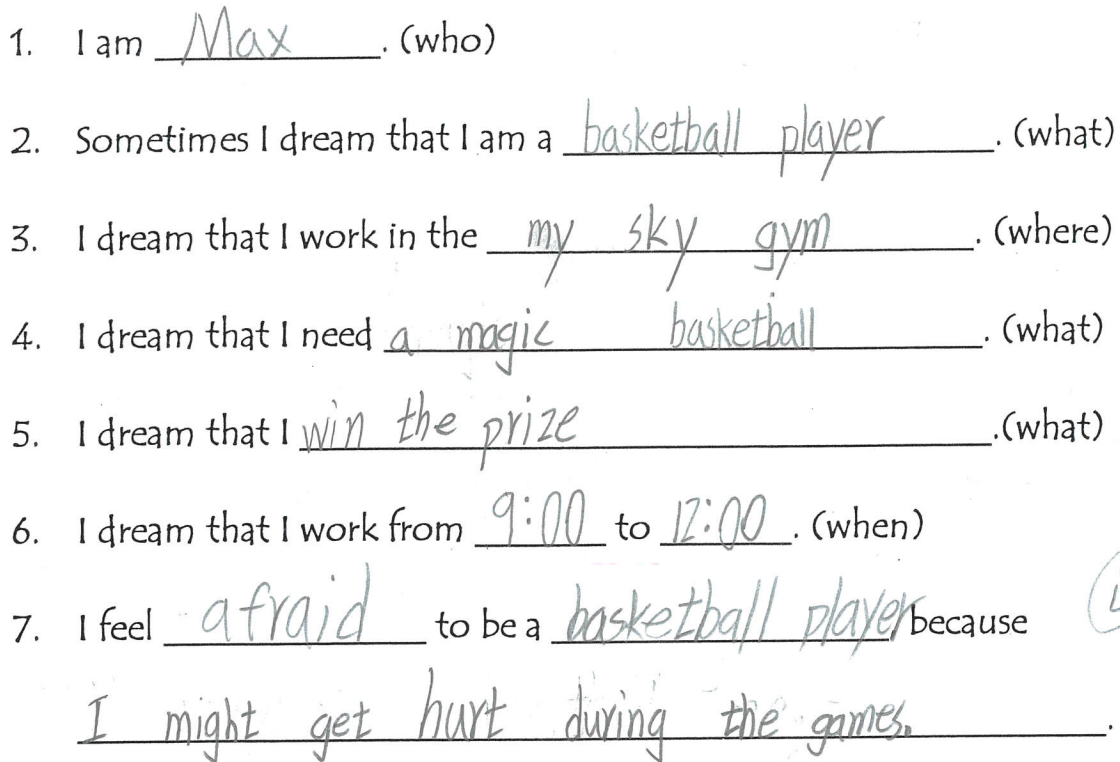 1. I am Max. (who)
2. Sometimes I dream that I am a basketball player. (what)
3. I dream that I work in the my sky gym. (where)
4. I dream that I need a magic basketball. (what)
5. I dream that I win the prize.(what)
6. I dream that I work from 9:00 to 12:00. (when)
7. I feel afraid to be a basketball player because
I might get hurt during the games..